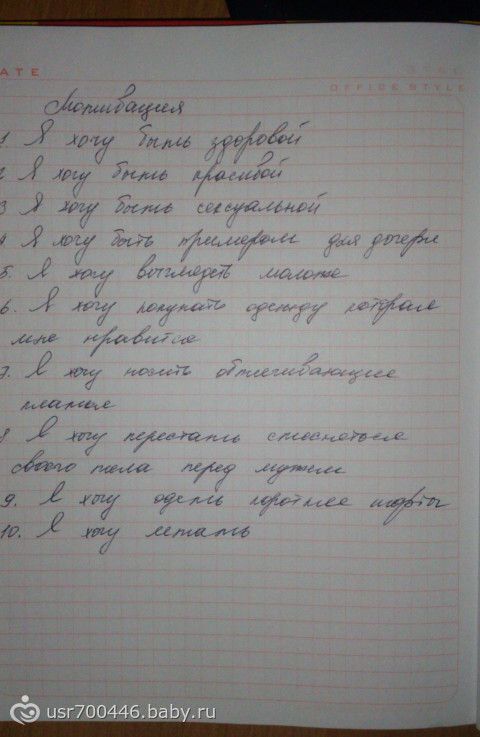 ATE
OFFICE STYLE
Мотивация
1 Я хочу быть здоровой
2 Я хочу быть красивой
3 Я хочу быть сексуальной
4 Я хочу быть примером для дочери
5. Я хочу выглядеть моложе
6. Я хочу покупать одежду которая
мне нравится
7. Я хочу носить обтягивающие
платья
8 Я хочу перестать стесняться
своего тела перед мужем
9. Я хочу одеть короткие шорты
10. Я хочу летать
usr700446.baby.ru